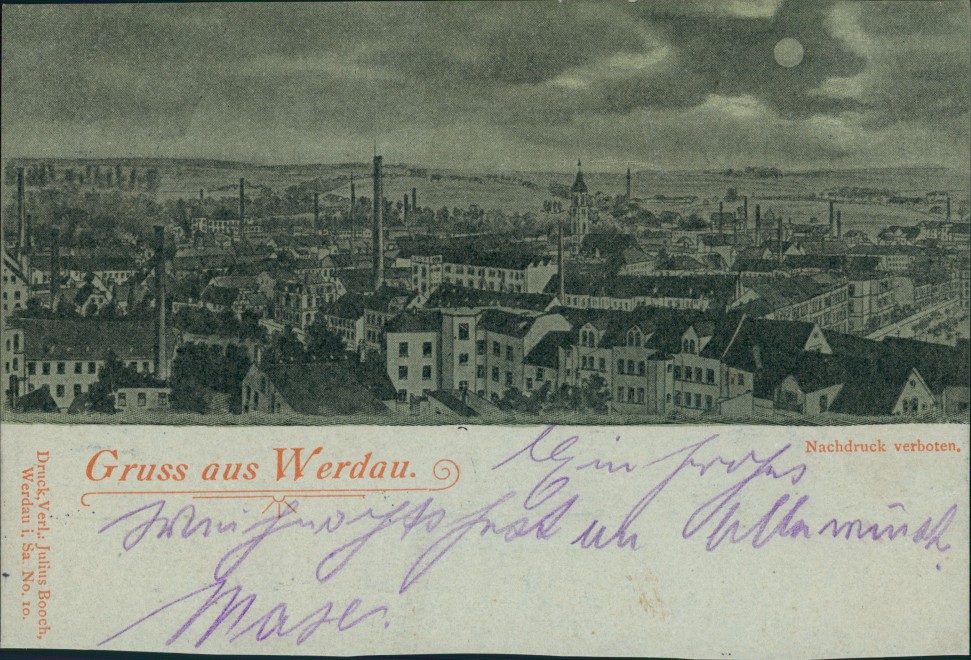 Nachdruck verboten.
Gruss aus Werdau.
Ein frohes
Weihnachtsfest
wünscht
Druck, Verl.: Julius Booch,
Werdau i. Sa. No. 10.